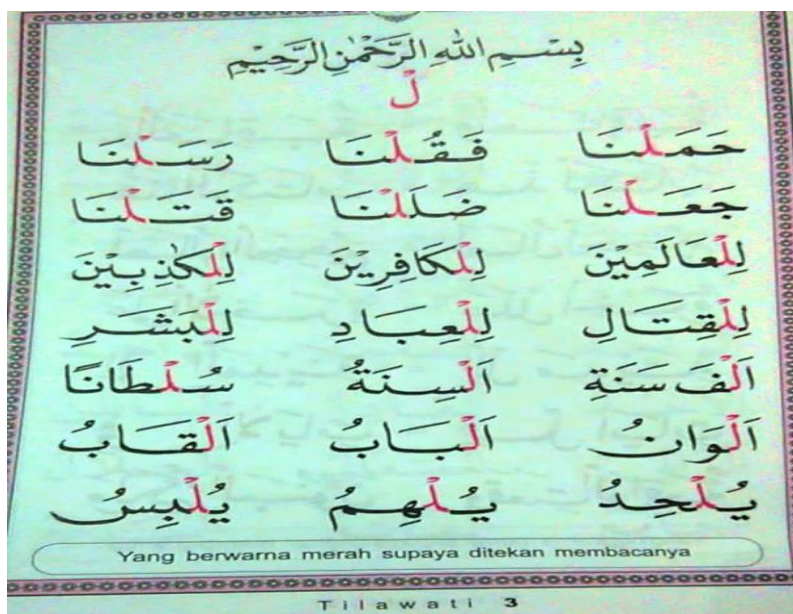 بِسْمِ اللهِ الرَّحْمٰنِ الرَّحِيْمِ
لْ
حَمَلْنَا فَقُلْنَا رَسَلْنَا
جَعَلْنَا ضَلَلْنَا قَتَلْنَا
لِلْعَالَمِيْنَ لِلْكَافِرِيْنَ لِلْمَكٰذِبِيْنَ
لِلْقِتَالِ لِلْعِبَادِ لِلْبَشَرِ
اَلْفَ سَنَةٍ اَلْسِنَةُ سُلْطَانًا
اَلْوَانُ اَلْبَابُ اَلْقَابُ
يُلْحِدُ يُلْهِمُ يُلْبِسُ
Yang berwarna merah supaya ditekan membacanya
Tilawati 3